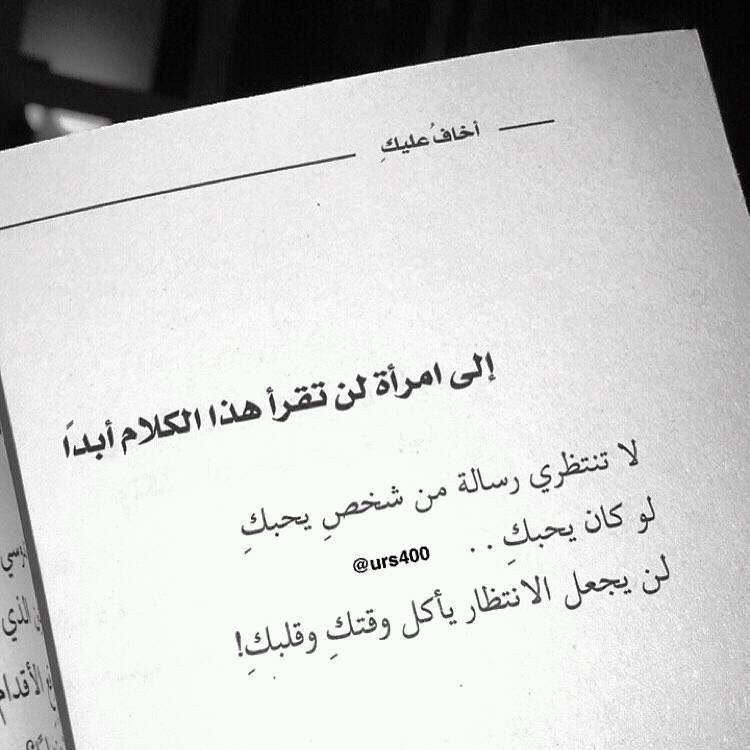 أخافُ عليكِ
إلى امرأة لن تقرأ هذا الكلام أبداً
لا تنتظري رسالة من شخصٍ يحبكِ
لو كان يحبكِ . .
@urs400
لن يجعل الانتظار يأكل وقتكِ وقلبكِ!
الذي
الأقدام